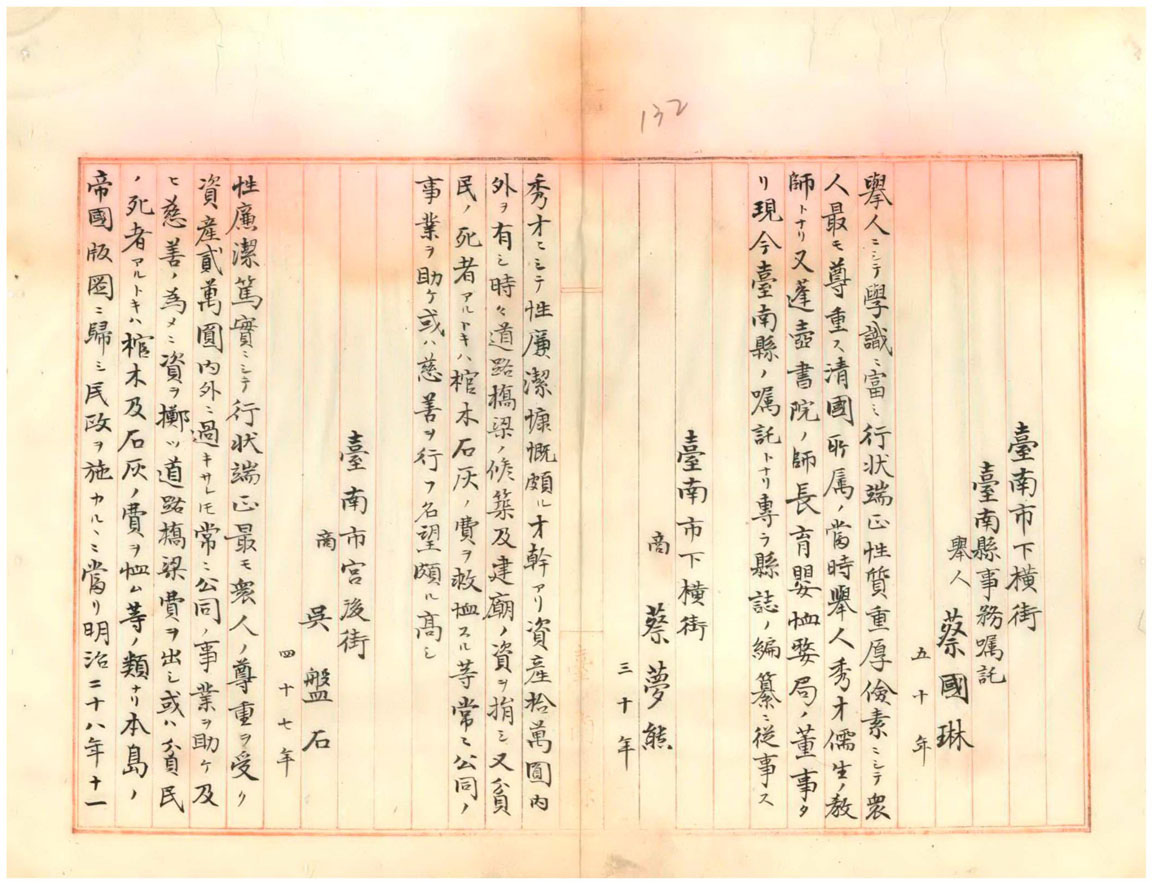 132
臺南市下横街
臺南縣事務嘱託
擧人 蔡國琳
五十年
擧人ニシテ學識ニ富ミ行状端正性質重厚儉素ニシテ衆
人最モ尊重ス清國所属ノ當時擧人秀才儒生ノ教
師トナリ又蓬壺書院ノ師長育嬰恤嫠局ノ董事タ
リ現今臺南縣ノ嘱託トナリ専ラ縣誌ノ編纂ニ従事ス
臺南市下横街
商 蔡夢熊
三十年
秀才ニシテ性廉潔慷慨頗ル才幹アリ資産拾萬圓内
外ヲ有シ時々道路橋梁ノ修築及建廟ノ資ヲ捐シ又貧
民ノ死者アルトキハ棺木石灰ノ費ヲ救恤スル等常ニ公同ノ
事業ヲ助ケ或ハ慈善ヲ行フ名望頗ル高シ
臺南市宮後街
商 吳盤石
四十七年
性廉潔篤實ニシテ行状端正最モ衆人ノ尊重ヲ受ク
資産貳萬圓内外ニ過キサレトモ常ニ公同ノ事業ヲ助ケ及
ヒ慈善ノ為メニ資ヲ擲ツ道路橋梁費ヲ出シ或ハ貧民
ノ死者アルトキハ棺木及石灰ノ費ヲ恤ム等ノ類ナリ本島ノ
帝國版圖ニ歸シ民政ヲ施カルヽニ當リ明治二十八年十一